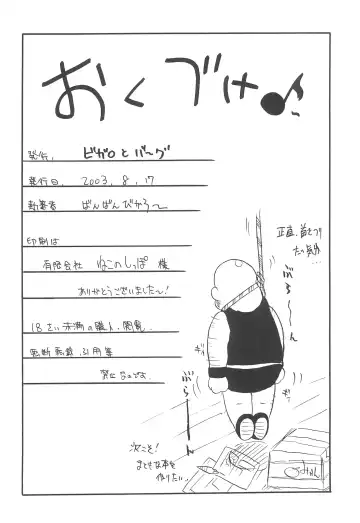 おくづけ♪
発行. ピカロとバーグ
発行日. 2003. 8. 17
執筆者 ばんばんぴかろ〜
印刷は
有限会社 ねこのしっぽ 様
ありがとうございました〜!
18さい未満の購入・閲覧.
無断転載・引用等
禁止なのです.
正直、首をつり
たい気分…
ぶら〜〜ん
ぶら〜ん
ギッ
ギッ
次こそ!
まともな本を
作りたい.